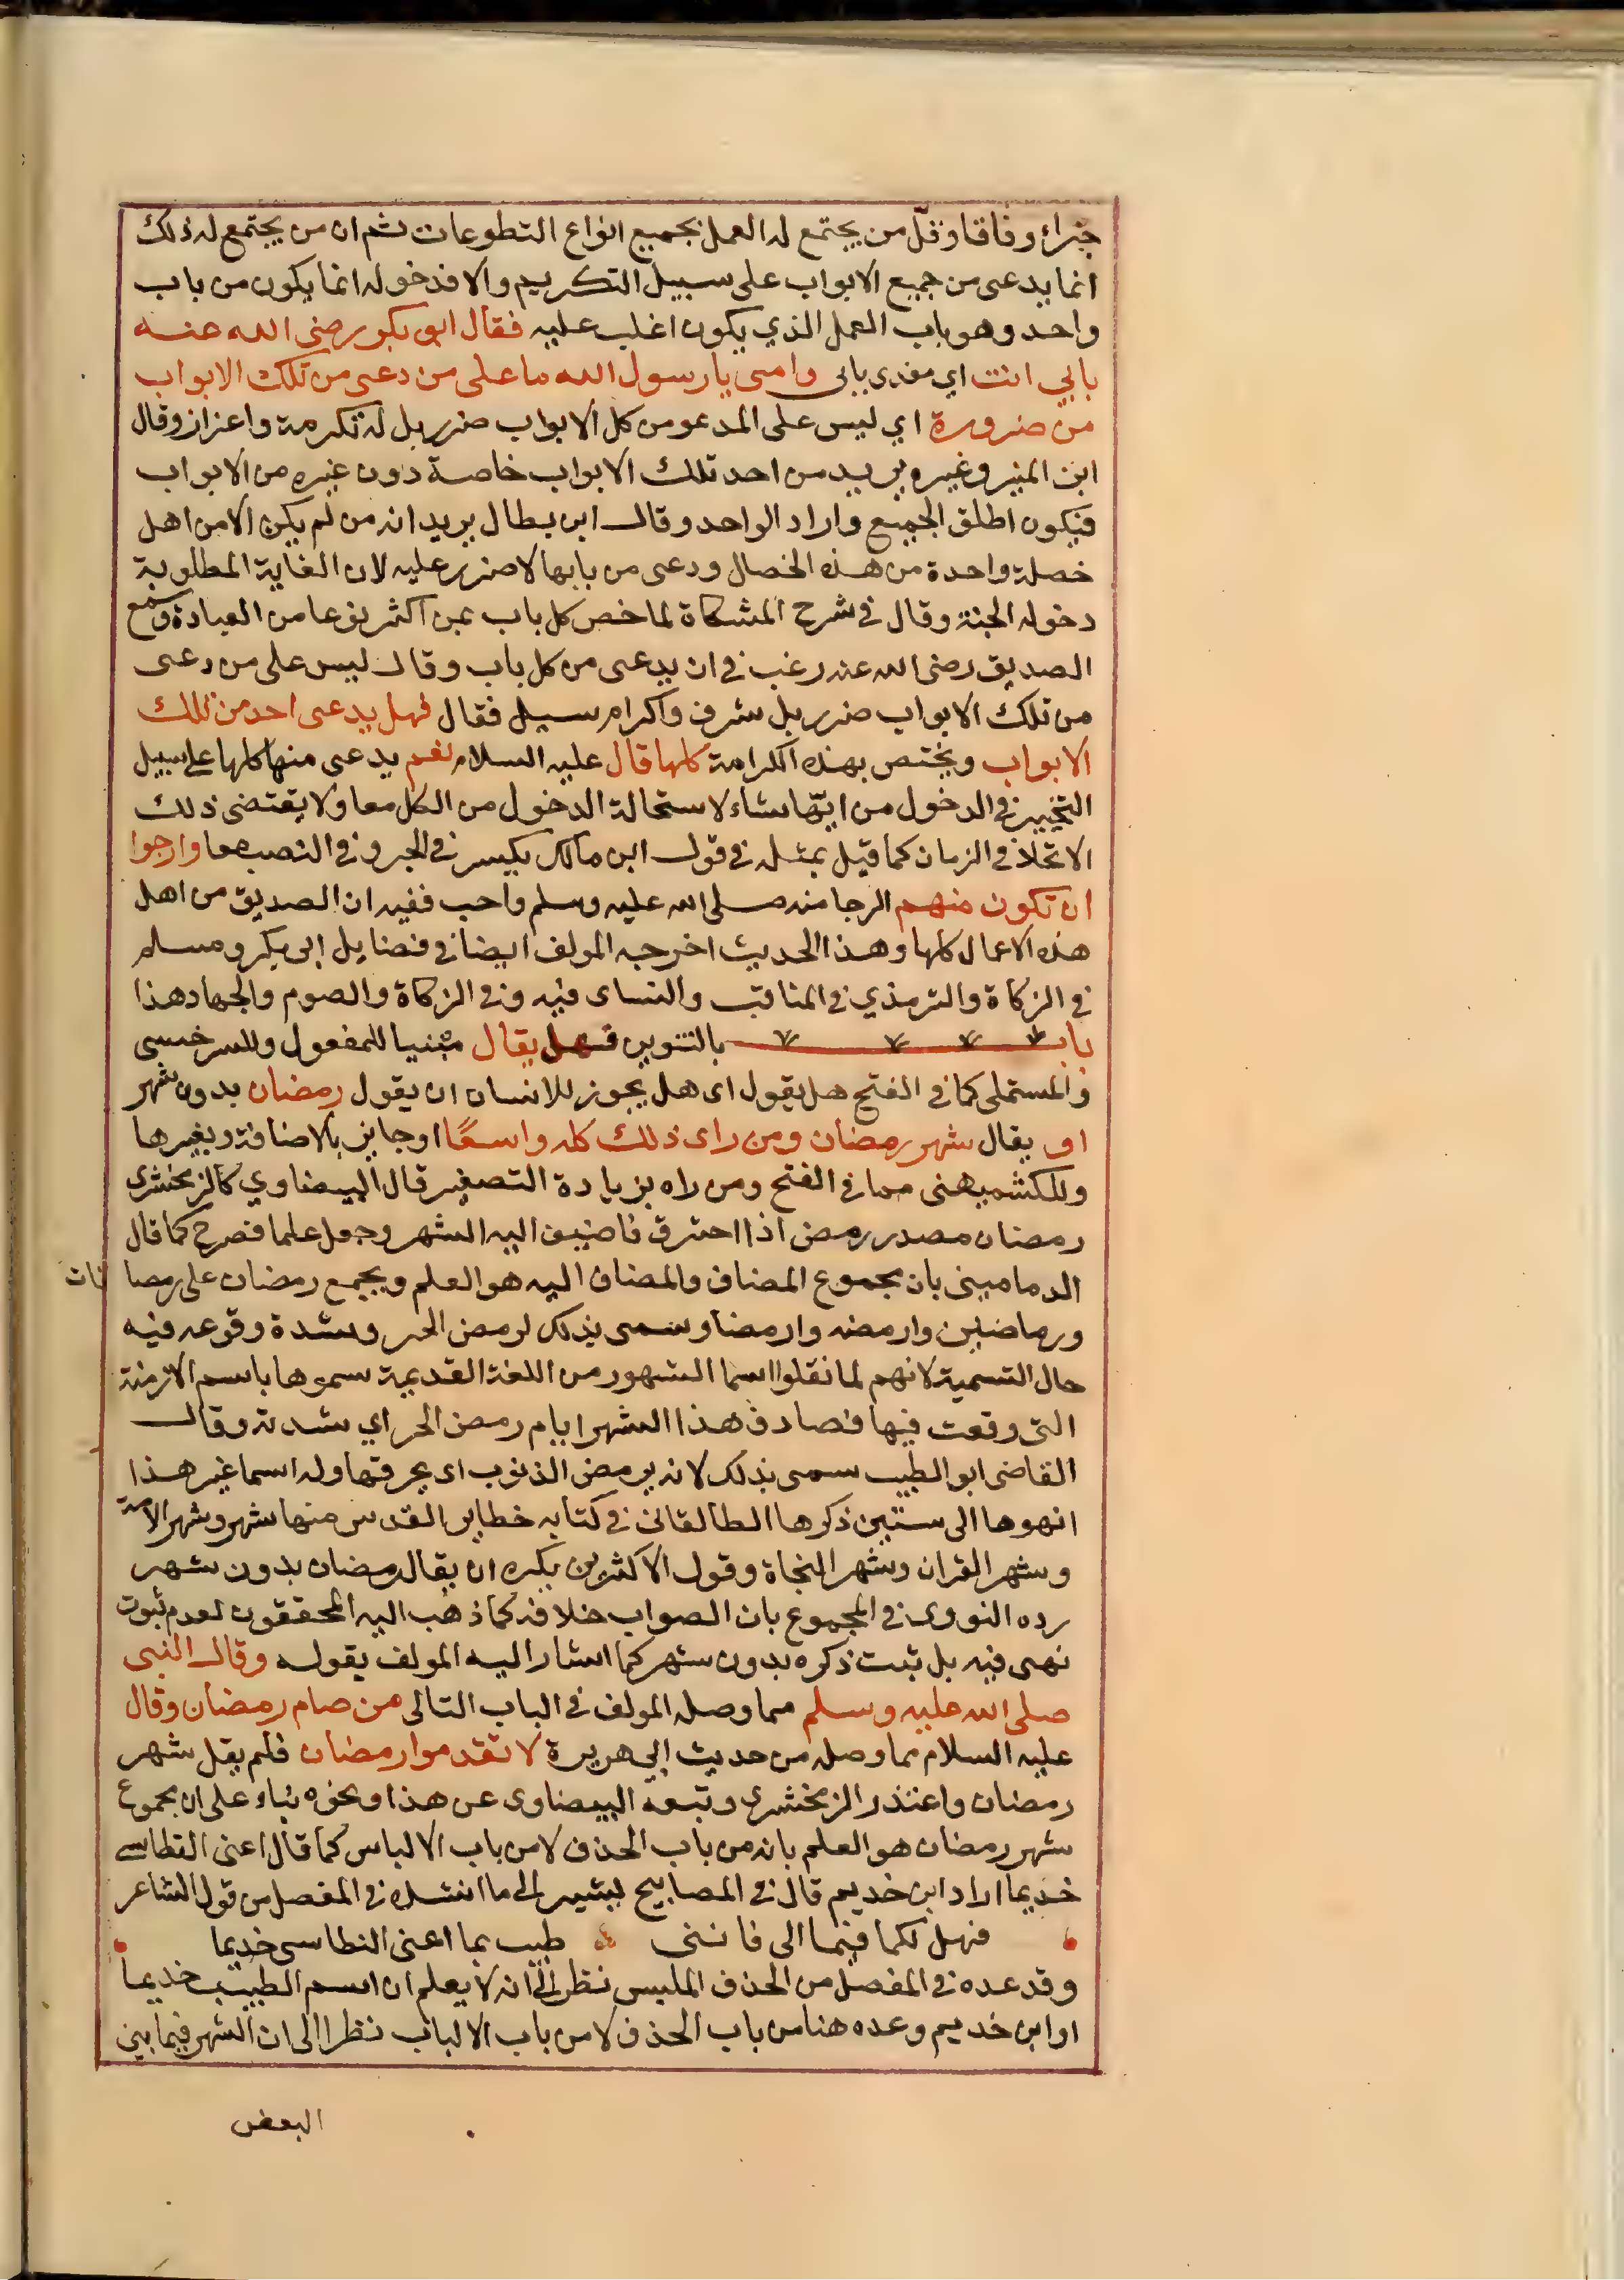 جزاء وفاقا وقلّ من يجتمع له العمل بجميع انواع التطوعات ثم ان من يجتمع له ذلك
انما يدعى من جميع الابواب على سبيل التكريم والا فدخوله انما يكون من باب
واحد وهو باب العمل الذي يكون اغلب عليه فقال ابو بكر رضى الله عنه
بابي انت اي مفدى بابى وامى يا رسول الله ما على من دعى من تلك الابواب
من ضرورة اي ليس على المدعو من كل الابواب ضرر بل له تكرمة واعزاز وقال
ابن المنير وغيره يريد من احد تلك الابواب خاصة دون غيره من الابواب
فيكون اطلق الجميع واراد الواحد وقال ابن بطال يريد انه من لم يكن الا من اهل
خصلة واحدة من هذه الخصال ودعى من بابها لا ضرر عليه لان الغاية المطلوبة
دخوله الجنة وقال في شرح المشكاة لما خص كل باب بمن اكثر نوعا من العبادة وسمع
الصديق رضى الله عنه رغب في ان يدعى من كل باب وقال ليس على من دعى
من تلك الابواب ضرر بل شرف واكرام سيل فقال فهل يدعى احد من تلك
الابواب ويختص بهذه الكرامة كلها قال عليه السلام نعم يدعى منها كلها على سبيل
التخيير في الدخول من ايّها شاء لاستحالة الدخول من الكل معا ولا يقتضى ذلك
الاتحاد في الزمان كما قيل بمثله في قول ابن مالك بكسر في الجر وفي النصب معا وارجوا
ان تكون منهم الرجا منه صلى الله عليه وسلم واجب ففيه ان الصديق من اهل
هذه الاعمال كلها وهذا الحديث اخرجه المولف ايضا في فضايل ابي بكر ومسلم
في الزكاة والترمذي في المناقب والنساى فيه وفي الزكاة والصوم والجهاد هذا
باب بالتنوين هل يقال مبنيا للمفعول وللسرخسى
والمستملى كما في الفتح هل يقول اى هل يجوز للانسان ان يقول رمضان بدون شهر
او يقال شهر رمضان ومن راى ذلك كله واسعًا او جايز بالاضافة وبغيرها
وللكشميهنى مما في الفتح ومن راه بزيادة التصغير قال البيضاوي كالزمخشرى
رمضان مصدر رمض اذا احترق فاضيف اليه الشهر وجعل علما فصرح كما قال
الدمامينى بان مجموع المضاف والمضاف اليه هو العلم ويجمع رمضان على رمضانات
ورماضين وارمضه وارمضا وسمى بذلك لرمض الحر وشدة وقوعه فيه
حال التسمية لانهم لما نقلوا اسما الشهور من اللغة القديمة سموها باسم الازمنة
التى وقعت فيها فصادف هذا الشهر ايام رمض الحر اي شدته وقال
القاضى ابو الطيب سمى بذلك لانه يرمض الذنوب اى يحرقها وله اسما غير هذا
انهوها الى ستين ذكرها الطالقانى في كتابه خطاير القدس منها شهر وشهر الامة
وشهر القران وشهر النجاة وقول الاكثرين يكره ان يقال رمضان بدون شهر
رده النووى في المجموع بان الصواب خلافه كما ذهب اليه المحققون لعدم ثبوت
نهى فيه بل ثبت ذكره بدون شهر كما اشار اليه المولف بقوله وقال النبى
صلى الله عليه وسلم مما وصله المولف في الباب التالى من صام رمضان وقال
عليه السلام مما وصله من حديث ابي هريرة لا تقدموا رمضان فلم يقل شهر
رمضان واعتذر الزمخشرى وتبعه البيضاوى عن هذا ونحوه بناء على ان مجموع
شهر رمضان هو العلم بانه من باب الحذف لا من باب الالباس كما قال اعنى النطاسى
خديما اراد ابن خديم قال في المصابيح ليشير الى ما انشده في المفصل من قول الشاعر
فهل لكما فيما الى فاننى طبيب بما اعنى النطاسى خديما
وقد عده في المفصل من الحذف الملبس نظرا الى انه لا يعلم ان اسم الطبيب خديما
او ابن خديم وعده هنا من باب الحذف لا من باب الالباب نظرا الى ان الشهر فيما بين
البعض